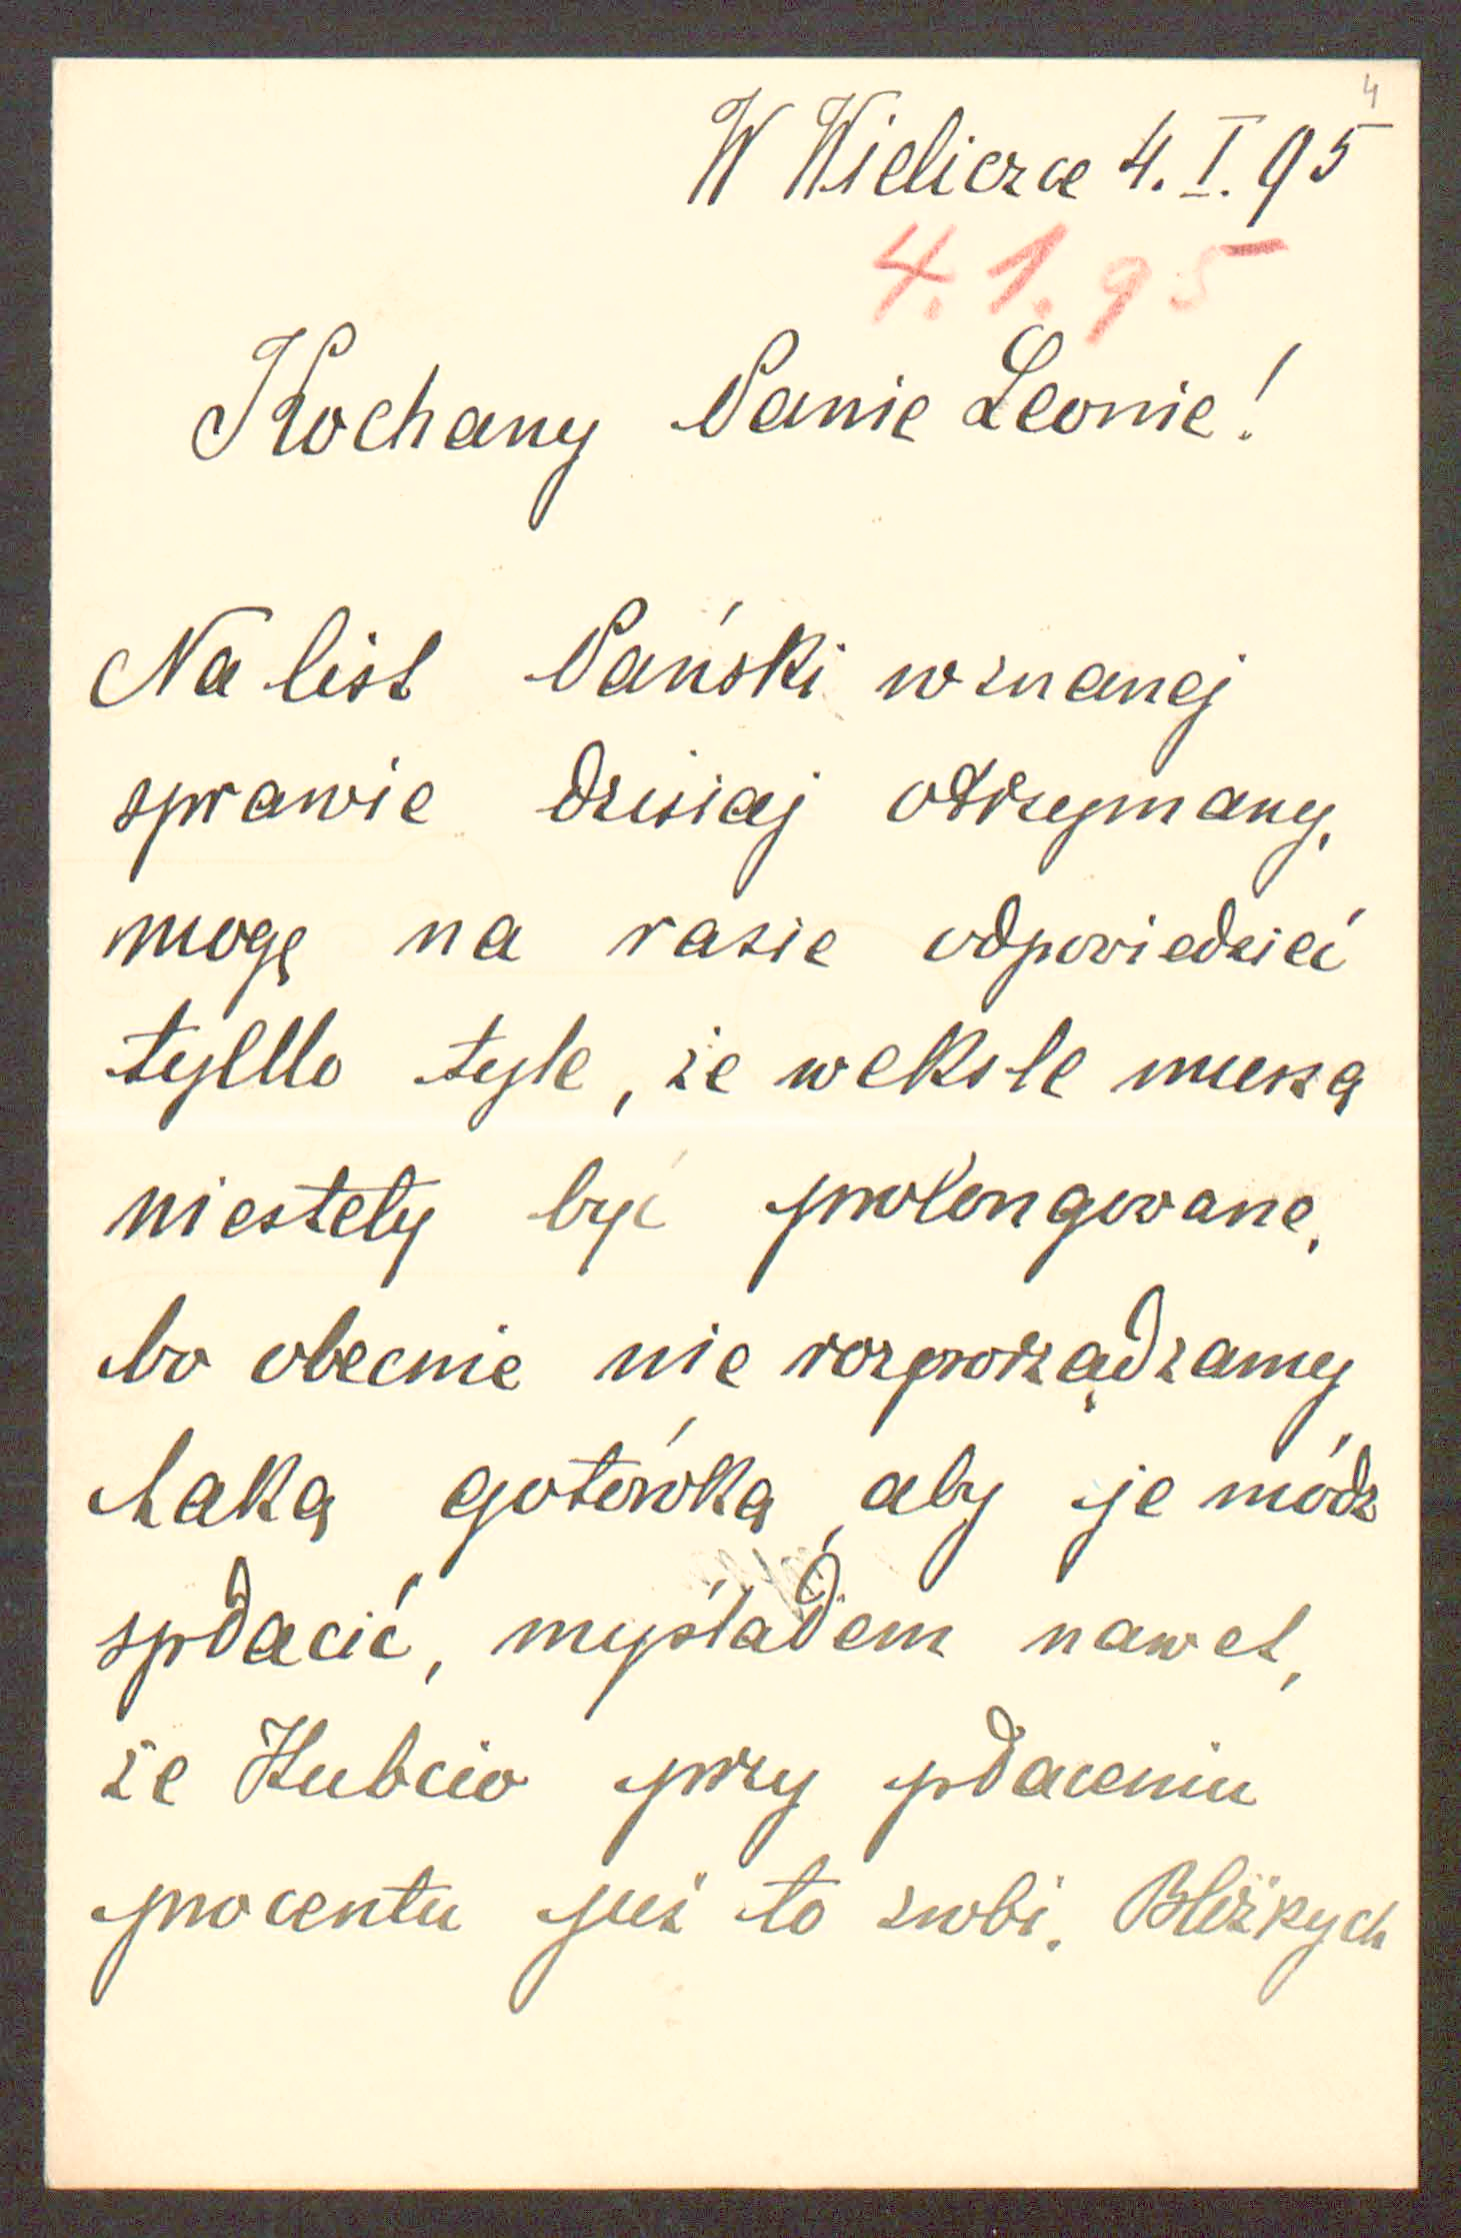 4
W Wieliczce 4. I. 95
4. 1. 95
Kochany Panie Leonie!
Na list Pański w znanej
sprawie dzisiaj otrzymany,
mogę na razie odpowiedzieć
tylko tyle, że weksle muszą
niestety być prolongowane,
bo obecnie nie rozporządzamy
taką gotówką, aby je módz
spłacić, myślałem nawet,
że Hubcio przy płaceniu
procentu już to zrobi. Bliższych